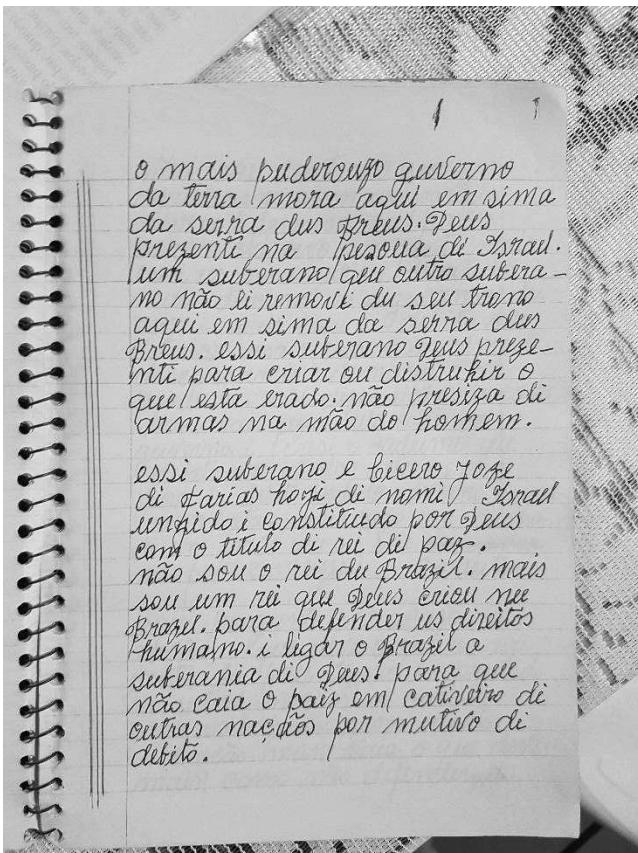 1
o mais puderouzo guverno
da terra mora aqui em sima
da serra dus Breus. Deus
prezenti na pesoua di Israel.
um suberano que outro subera-
no não li removi du seu trono
aqui em sima da serra dus
Breus. essi suberano Deus preze-
nti para criar ou distruhir o
que esta erado. não presiza di
armas na mão do homem.
essi suberano e Cicero Joze
di Farias hoji di nomi Israel
ungido i constituido por Deus
com o titulo di rei di paz.
não sou o rei du Brazil. mais
sou um rei que Deus criou nu
Brazil. para defender us direitos
humano. i ligar o Brazil a
suberania di Deus. para que
não caia o paiz em cativeiro di
outras nações por mutivo di
debito.